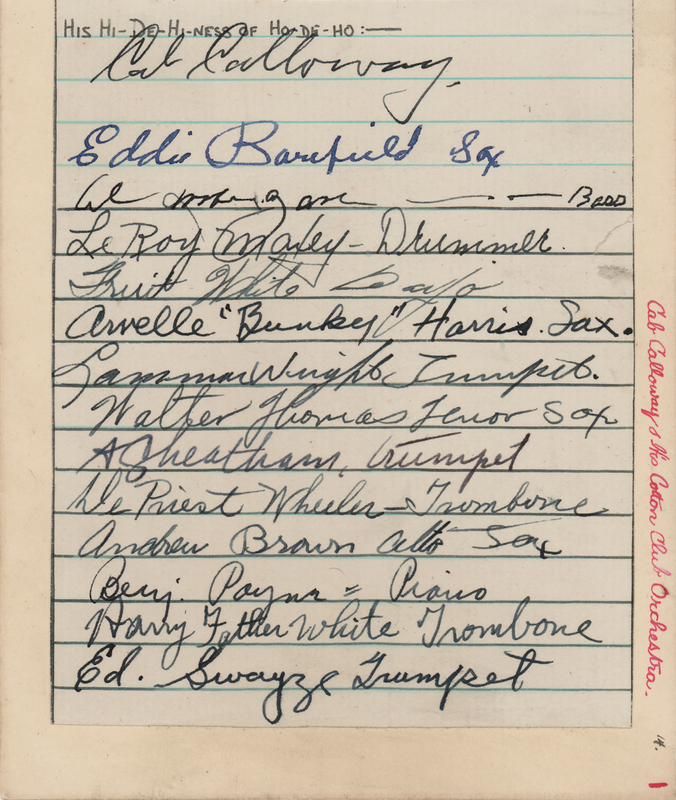 His Hi-De-Hi-ness of Ho-De-Ho:—
Cab Calloway.
Eddie Barefield Sax
Al Morgan — — Bass
LeRoy Maxey - Drummer.
Fruit White Banjo
Arvelle "Bunky" Harris. Sax.
Lammar Wright Trumpet.
Walter Thomas Tenor Sax
A Cheatham, trumpet
De Priest Wheeler - Trombone
Andrew Brown alto Sax
Benj. Payne = Piano
Harry Father White Trombone
Ed. Swayze Trumpet
Cab Calloway & His Cotton Club Orchestra.
14.